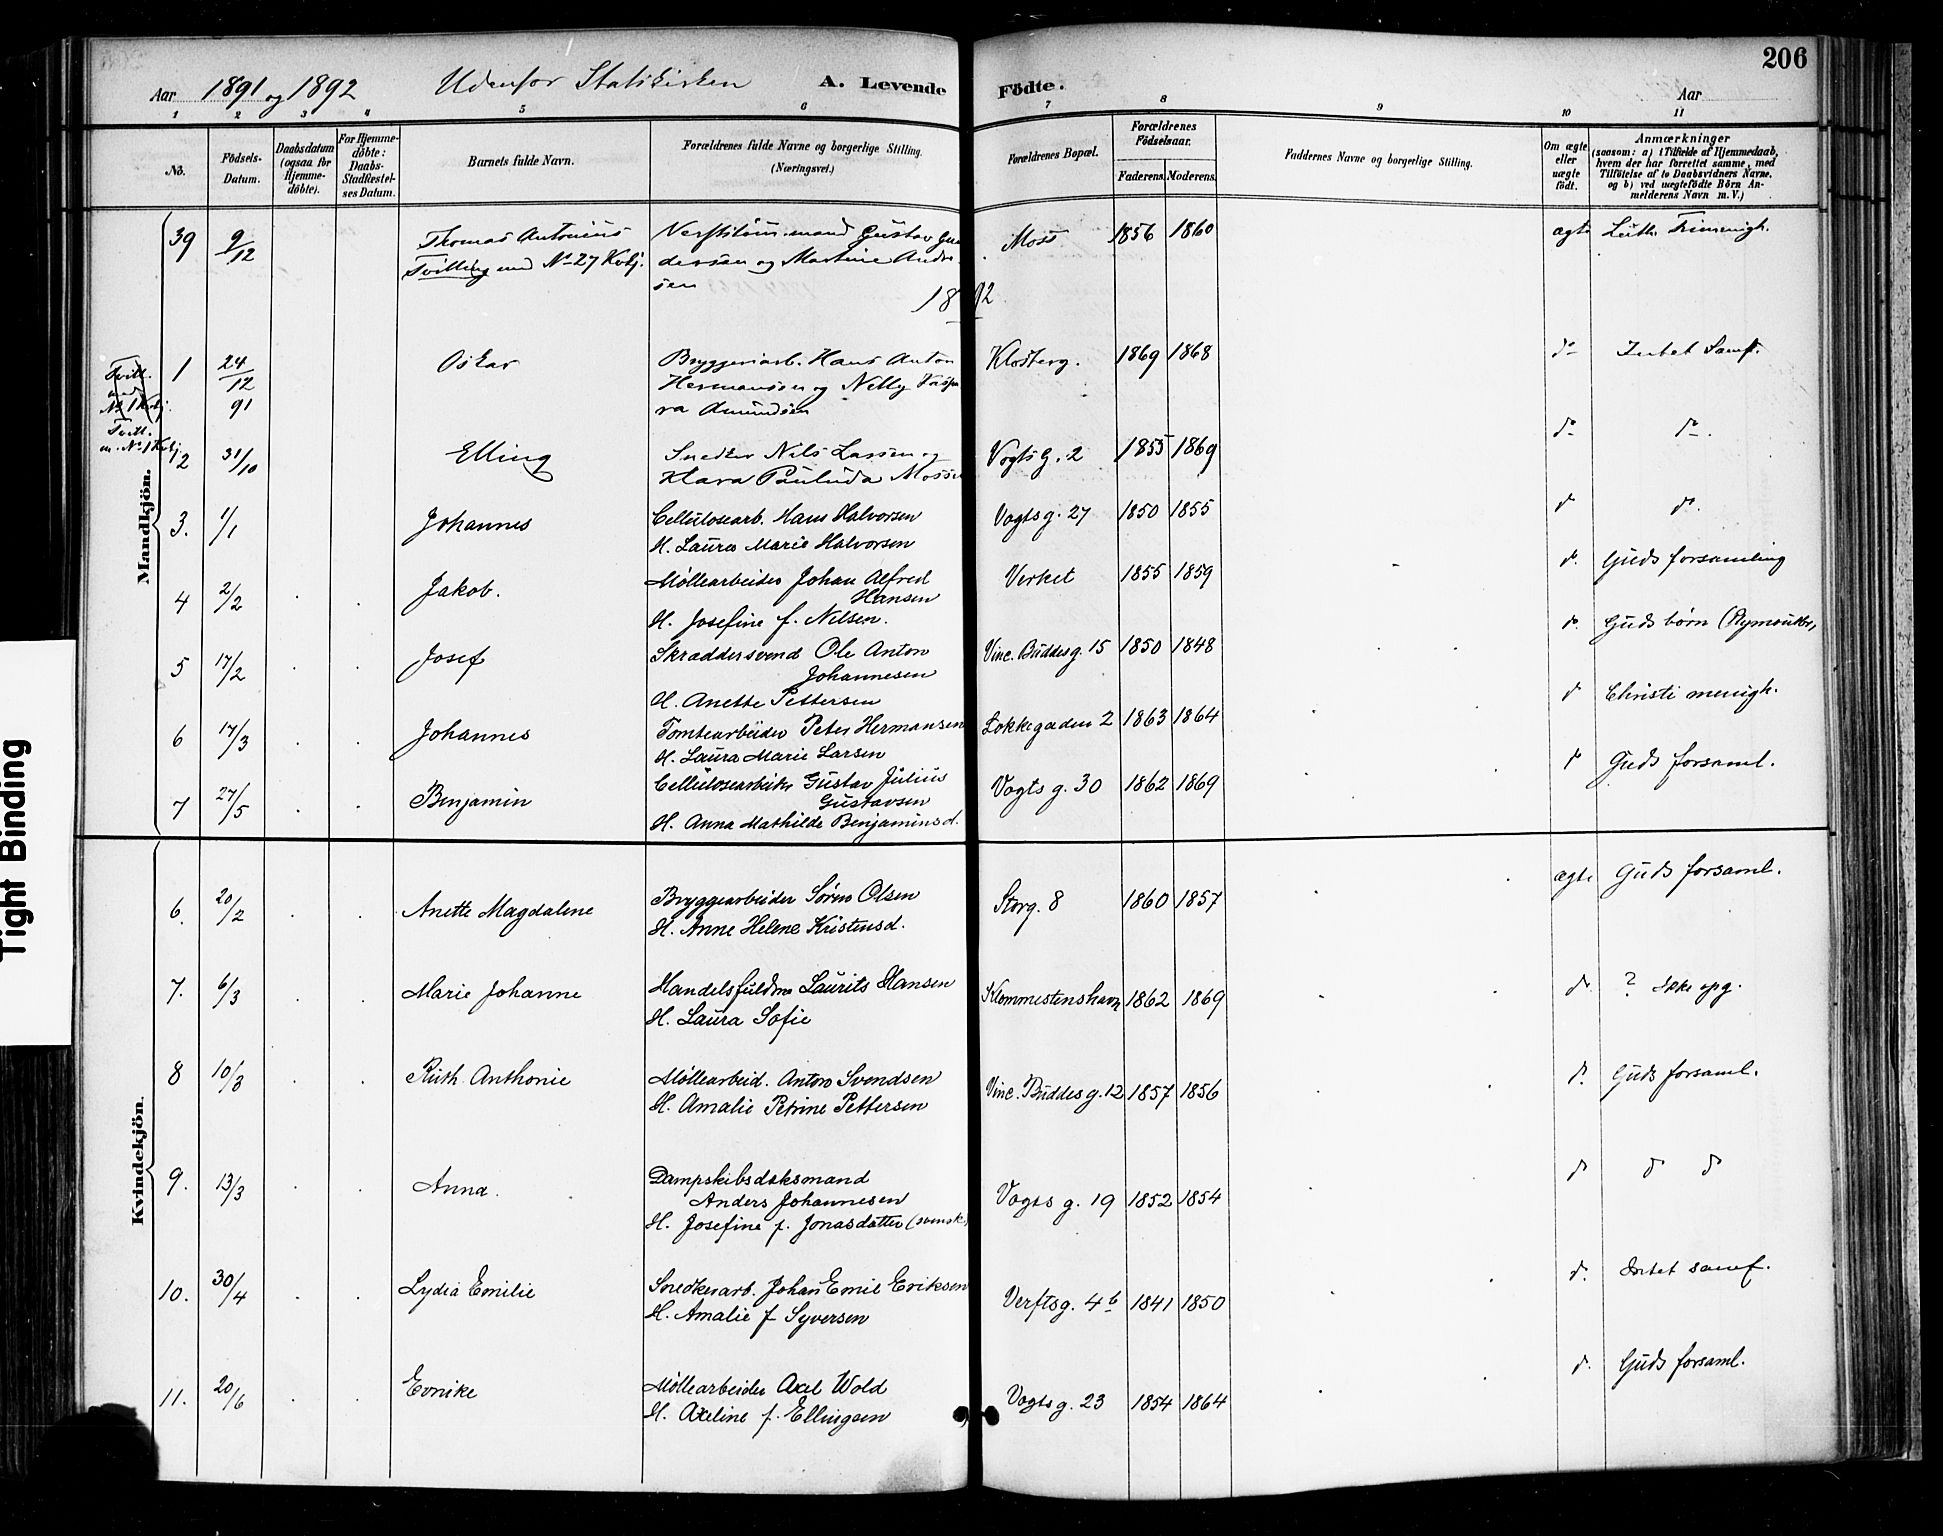 206
Aar 1891 og 1892 Udenfor Statskirken A. Levende Fødte. Aar
1 2 3 4 5 6 7 8 9 10 11
No.
Fødsels-Datum.
Daabsdatum (ogsaa for Hjemme-døbte).
For Hjemme-døbte: Daabs-Stadfæstel-ses Datum.
Barnets fulde Navn.
Forældrenes fulde Navne og borgerlige Stilling.
(Næringsvei.)
Forældrenes Bopæl.
Forældrenes Fødselsaar.
Faderens. Moderens.
Faddernes Navne og borgerlige Stilling.
Om ægte eller uægte født.
Anmærkninger
(saasom: a) i Tilfælde af Hjemmedaab,
hvem der har forrettet samme, med
Tilføielse af to Daabsvidners Navne,
og b) ved uægtefødte Børn An-
melderens Navn m. V.)
Mandkjön.
39 9/12 Thomas Antonius
Tvilling med No 27 Kvkj.
mand Gustav Gun
dersen og Martine Andre
sen
Moss 1856 1860 ægte Luth. Frimenigh.
1892
Tvill.
med
No 1 Kvkj.
1 24/12 91 Oskar
Bryggeriarb. Hans Anton
Hermansen og Nelly
ra Amundsen
Klosterg. 1869 1868 do Intet Samf.
Tvill.
m. No 1 Kvkj.
2 31/10 Elling
Snedker Nils Larsen og
Klara Pauluda
Vogtsg. 2 1855 1869 do do.
3. 1/1 Johannes
Cellulosearb. Hans Halvorsen
H. Laura Marie Halvorsen
Vogtsg. 27 1850 1855 do do.
4 2/2 Jakob.
Møllearbeider Johan Alfred
Hansen
H. Josefine f. Nilsen.
Verket 1855 1859 do. Guds forsamling
5 17/2 Josef
Skræddersvend Ole Anton
Johannesen
H. Anette Pettersen
Vinc. Buddesg. 15 1850 1848 do. Guds børn (Plymouthbr.)
6 17/3 Johannes
Tomtearbeider Peter Hermansen
H. Laura Marie Larsen
Løkkegaden 2 1863 1864 do Christi menigh.
7 27/5 Benjamin
Cellulosearbeider Gustav Julius
Gustavsen
H. Anna Mathilde Benjaminsd.
Vogtsg. 30 1862 1869 do Guds forsaml.
Kvindekjön.
6. 20/2 Anette Magdalene
Bryggearbeider Søren Olsen
H. Anne Helene Kristensd.
Storg. 8 1860 1857 ægte Guds forsaml.
7. 6/3 Marie Johanne
Handelsfuldm. Laurits Hansen
H. Laura Sofie
Klommestenshavn 1862 1869 do. ? Ikke opg.
8 10/3 Ruth Anthonie
Møllearbeid. Anton Svendsen
H. Amalie Petrine Pettersen
Vinc. Buddesg. 12 1857 1856 do. Guds forsaml.
9. 13/3 Anna.
Dampskibsdæksmand
Anders Johannesen
H. Josefine f. Jonasdatter (svensk)
Vogtsg. 19 1852 1854 do do do
10. 30/4 Lydia Emilie
Snedkerarb. Johan Emil Eriksen
H. Amalie f. Syversen
Verftsg. 4b 1841 1850 do. Intet samf.
11. 20/6 Evnike
Møllearbeider Axel Wold
H. Axeline f. Ellingsen
Vogtsg. 23 1854 1864 do. Guds forsaml.
Tight Binding